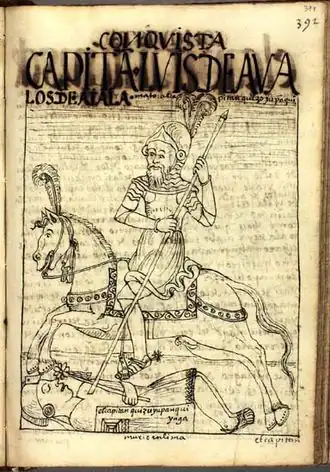 392
CONQVISTA
CAPITAN LVIS DE AVA
LOS DE AIALA mato al ca pitan quizo yupanqui
el capitan quizo yupanqui
ynga
murio en lima
el capitan